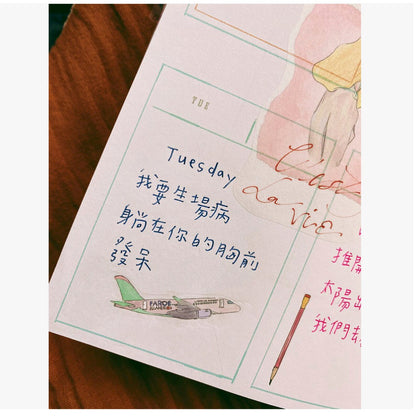 TUE
Tuesday
我要生場病
躺在你的胸前
發呆
C'est
La Vie
推開
太陽出
我們去